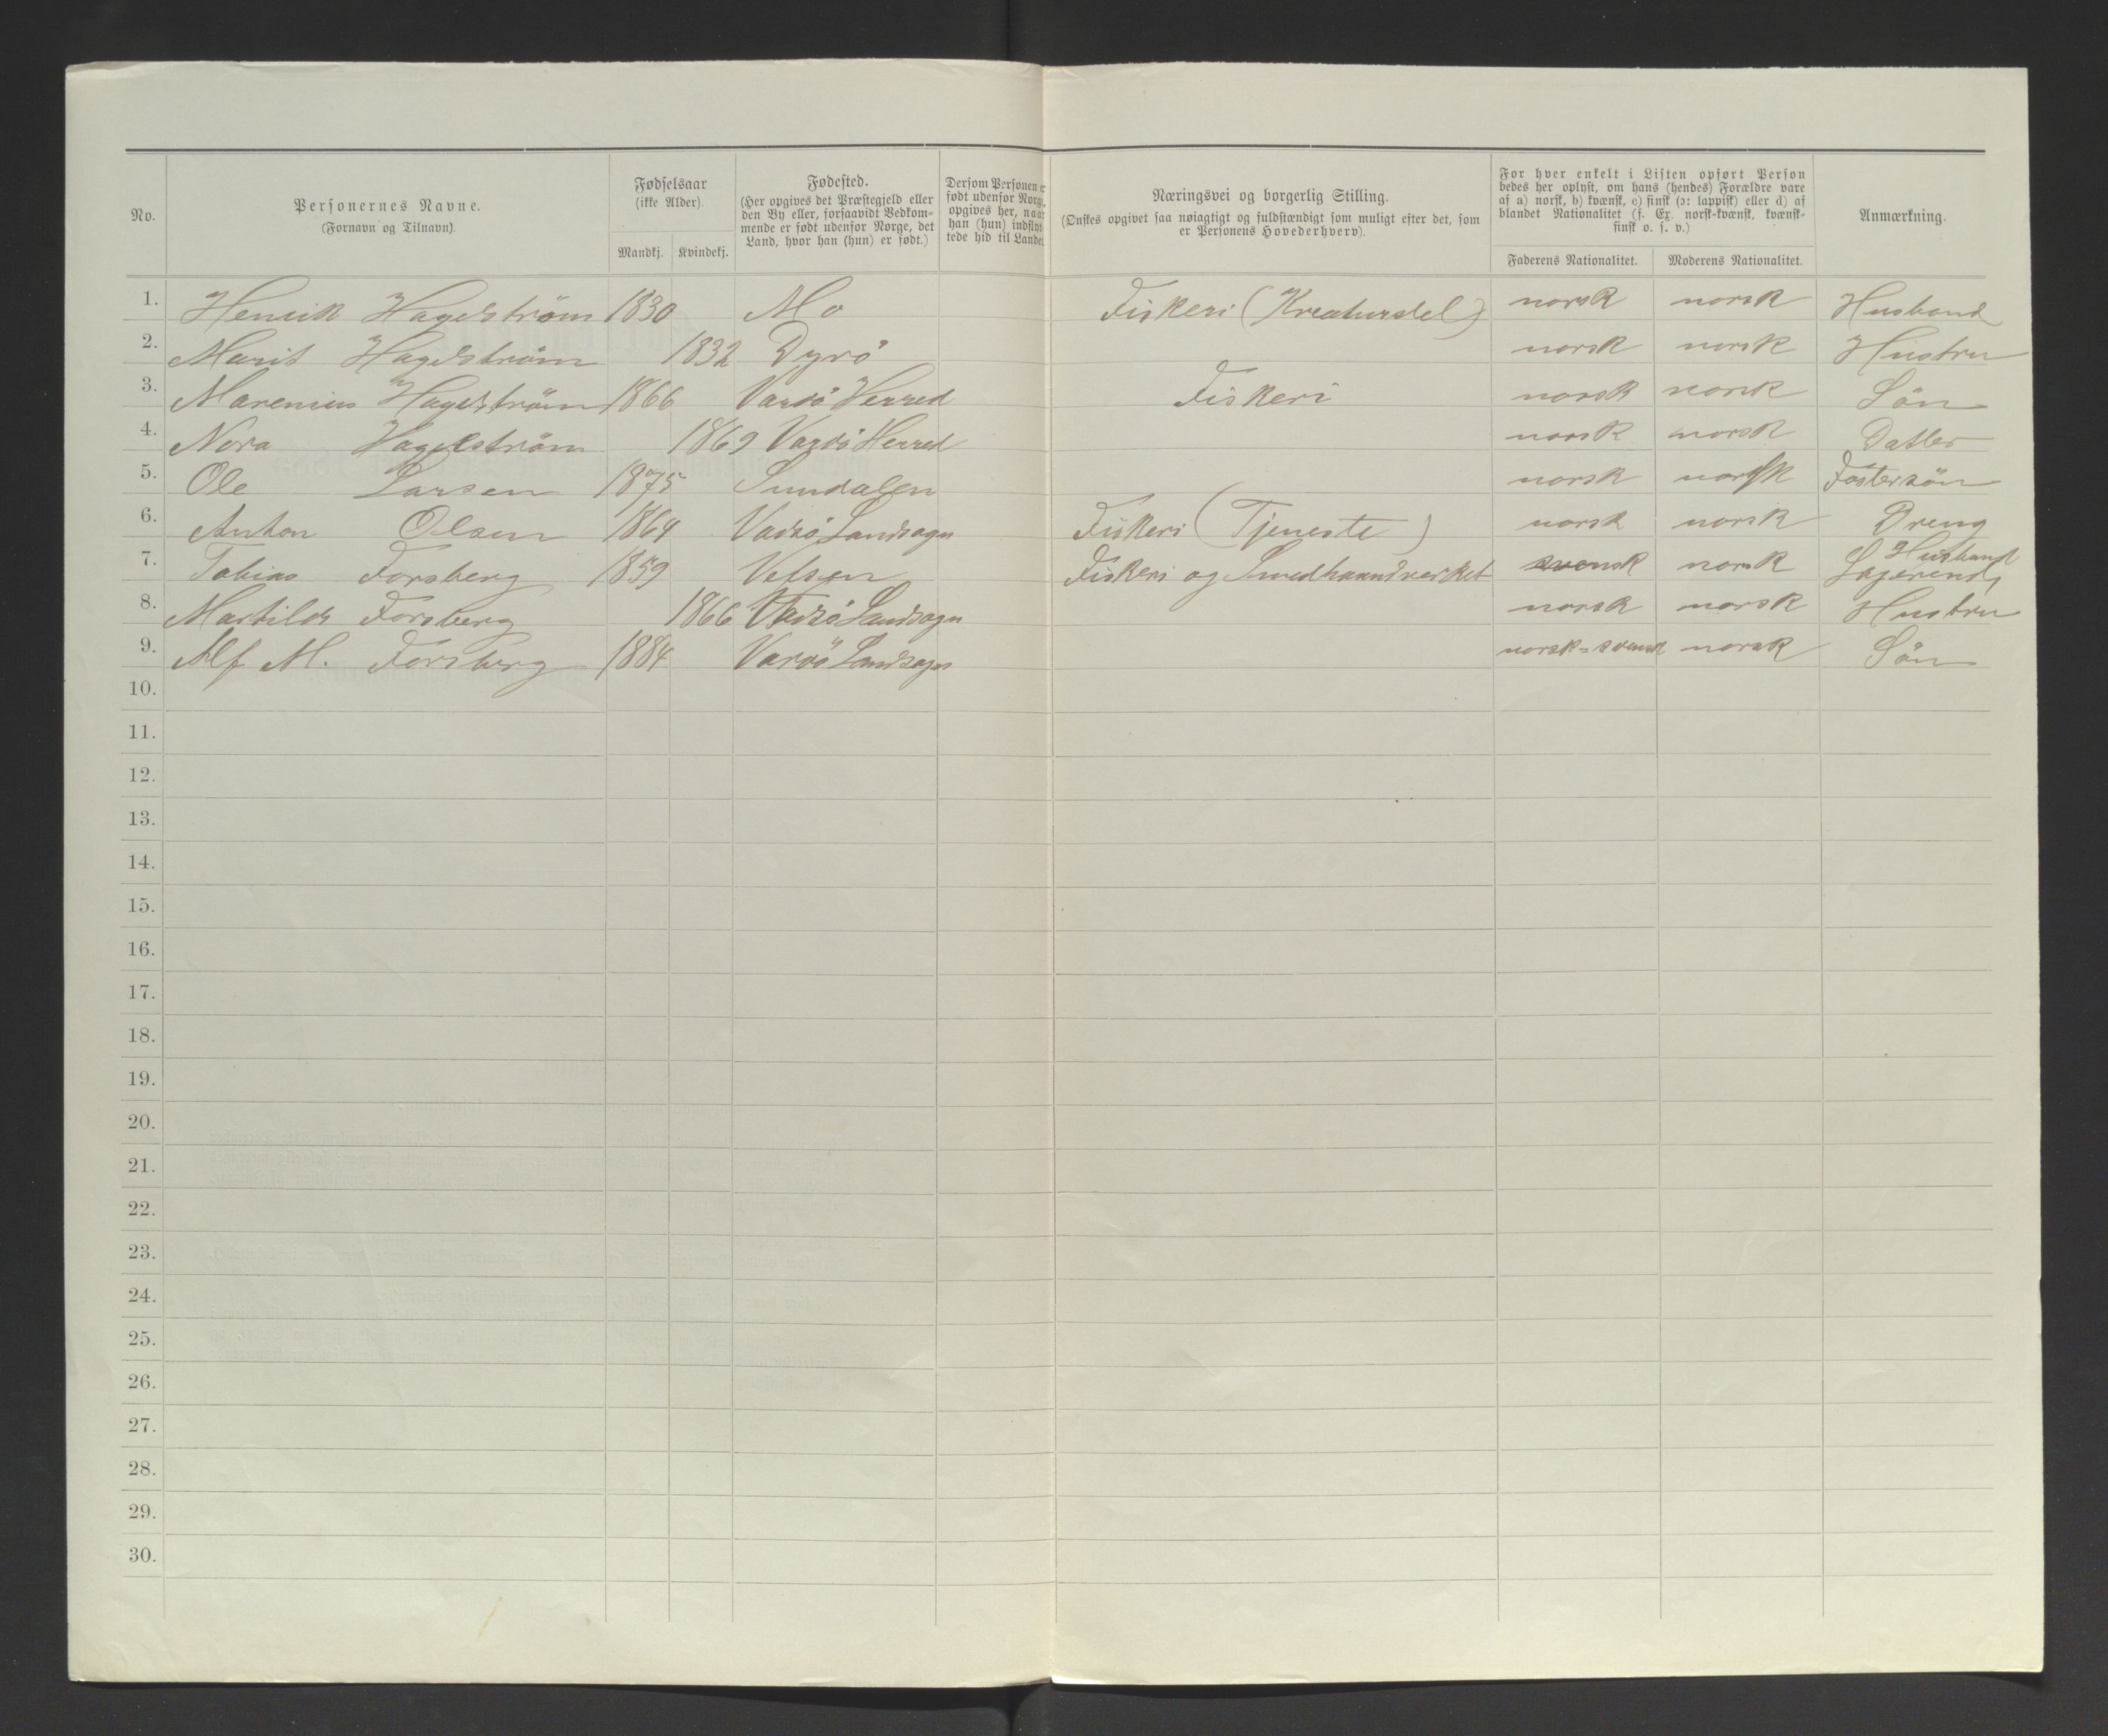 No.
Personernes Navne.
(Fornavn og Tilnavn).
Fødselsaar
(ikke Alder).
Mandkj. Kvindekj.
Fødested.
(Her opgives det Præstegjeld eller
den By eller, forsaavidt Vedkom-
mende er født udenfor Norge, det
Land, hvor han (hun) er født.)
Dersom Personen er
født udenfor Norge,
opgives her, naar
han (hun) indflyt-
tede hid til Landet.
Næringsvei og borgerlig Stilling.
(Ønskes opgivet saa nøiagtigt og fuldstændigt som muligt efter det, som
er Personens Hovederhverv).
For hver enkelt i Listen opført Person
bedes her oplyst, om hans (hendes) Forældre vare
af a) norsk, b) kvænsk, c) finsk (ɔ: lappisk) eller d) af
blandet Nationalitet (f. Ex. norsk-kvænsk, kvænsk-
finsk o. s. v.)
Faderens Nationalitet. Moderens Nationalitet.
Anmærkning.
1. Henrik Hagelström 1830 Mo Fiskeri (Kreaturstel) norsk norsk Husbond
2. Marit Hagelström 1832 Dyrö norsk norsk Hustru
3. Marenius Hagelström 1866 Vardö Herred Fiskeri norsk norsk Sön
4. Nora Hagelström 1869 Vardö Herred norsk norsk Datter
5. Ole Larsen 1875 Sundalen norsk norsk Fostersön
6. Anton Olsen 1864 Vadsö Landsogn Fiskeri (Tjeneste) norsk norsk Dreng
7. Tobias Forsberg 1859 Vefsen Fiskeri og Smedhaandverket svensk norsk Husbond
Logerende
8. Martilde Forsberg 1866 Vadsö Landsogn norsk norsk Hustru
9. Alf M. Forsberg 1884 Vardö Landsogn norsk-svensk norsk Sön
10.
11.
12.
13.
14.
15.
16.
17.
18.
19.
20.
21.
22.
23.
24.
25.
26.
27.
28.
29.
30.